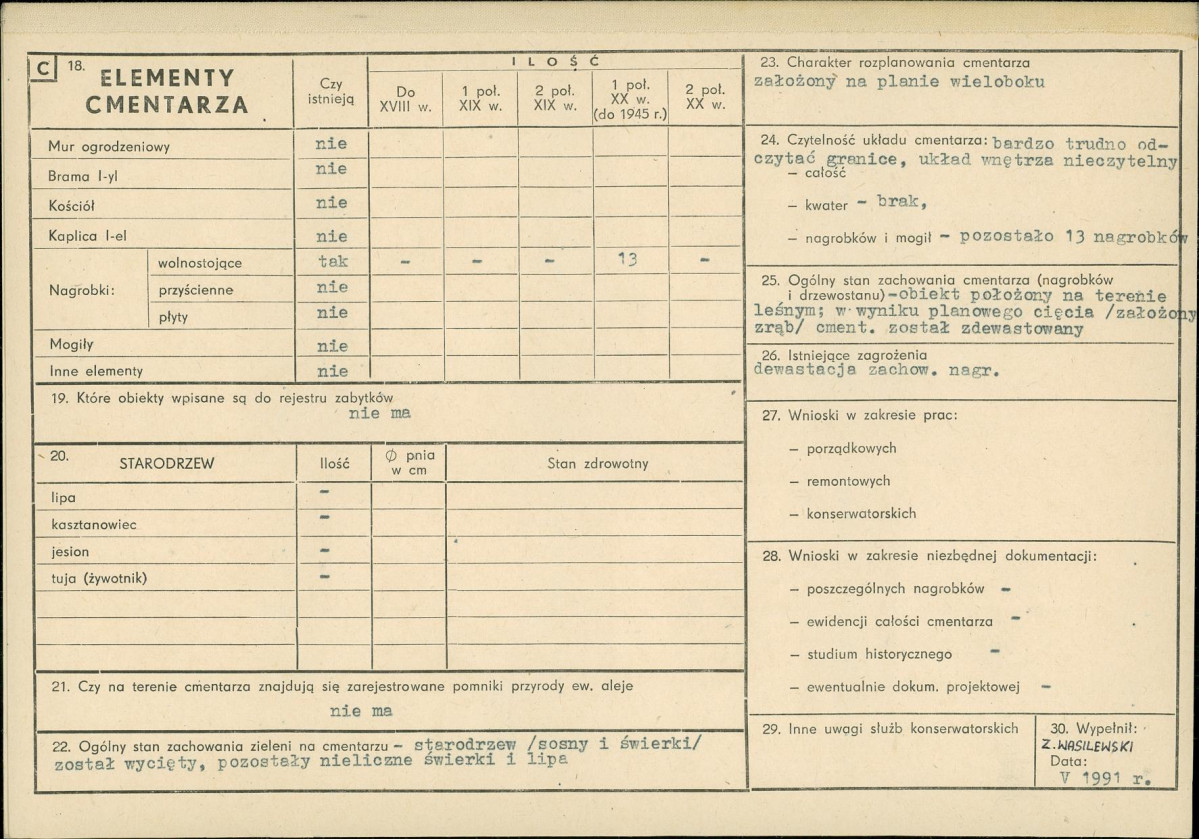 C 18. ELEMENTY CMENTARZA
Czy istnieją
ILOŚĆ
Do XVIII w.
1 poł. XIX w.
2 poł. XIX w.
1 poł. XX w. (do 1945 r.)
2 poł. XX w.
Mur ogrodzeniowy nie
Brama I-yl nie
Kościół nie
Kaplica I-el nie
Nagrobki:
wolnostojące tak - - - 13 -
przyścienne nie
płyty nie
Mogiły nie
Inne elementy nie
19. Które obiekty wpisane są do rejestru zabytków
nie ma
20. STARODRZEW Ilość Ø pnia w cm Stan zdrowotny
lipa -
kasztanowiec -
jesion -
tuja (żywotnik) -
21. Czy na terenie cmentarza znajdują się zarejestrowane pomniki przyrody ew. aleje
nie ma
22. Ogólny stan zachowania zieleni na cmentarzu - starodrzew /sosny i świerki/
został wycięty, pozostały nieliczne świerki i lipa
23. Charakter rozplanowania cmentarza
założony na planie wieloboku
24. Czytelność układu cmentarza: bardzo trudno od-
czytać granice, układ wnętrza nieczytelny
– całość
– kwater - brak,
– nagrobków i mogił - pozostało 13 nagrobków
25. Ogólny stan zachowania cmentarza (nagrobków
i drzewostanu) -obiekt położony na terenie
leśnym; w wyniku planowego cięcia /założony
zrąb/ cment. został zdewastowany
26. Istniejące zagrożenia
dewastacja zachow. nagr.
27. Wnioski w zakresie prac:
– porządkowych
– remontowych
– konserwatorskich
28. Wnioski w zakresie niezbędnej dokumentacji:
– poszczególnych nagrobków -
– ewidencji całości cmentarza -
– studium historycznego -
– ewentualnie dokum. projektowej -
29. Inne uwagi służb konserwatorskich
30. Wypełnił:
Z. WASILEWSKI
Data:
V 1991 r.